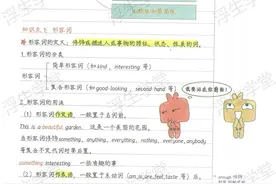 知识点1 形容词
形容词的定义：修饰或描述人或事物的特征、状态、性质的词。
1.形容词的分类
形容词
简单形容词（如kind，interesting 等）
复合形容词（如good-looking，second hand 等）
2.形容词的用法
（1）形容词作定语，一般置于名词前。
This is a beautiful garden. 这是一个美丽的花园。
当形容词修饰something, anything, everything, nothing, everyone, anybody
等复合不定代词时要后置。
something interesting 一些有趣的事
（2）形容词作表语，一般置于系动词（am,is,are,feel,taste 等）后。